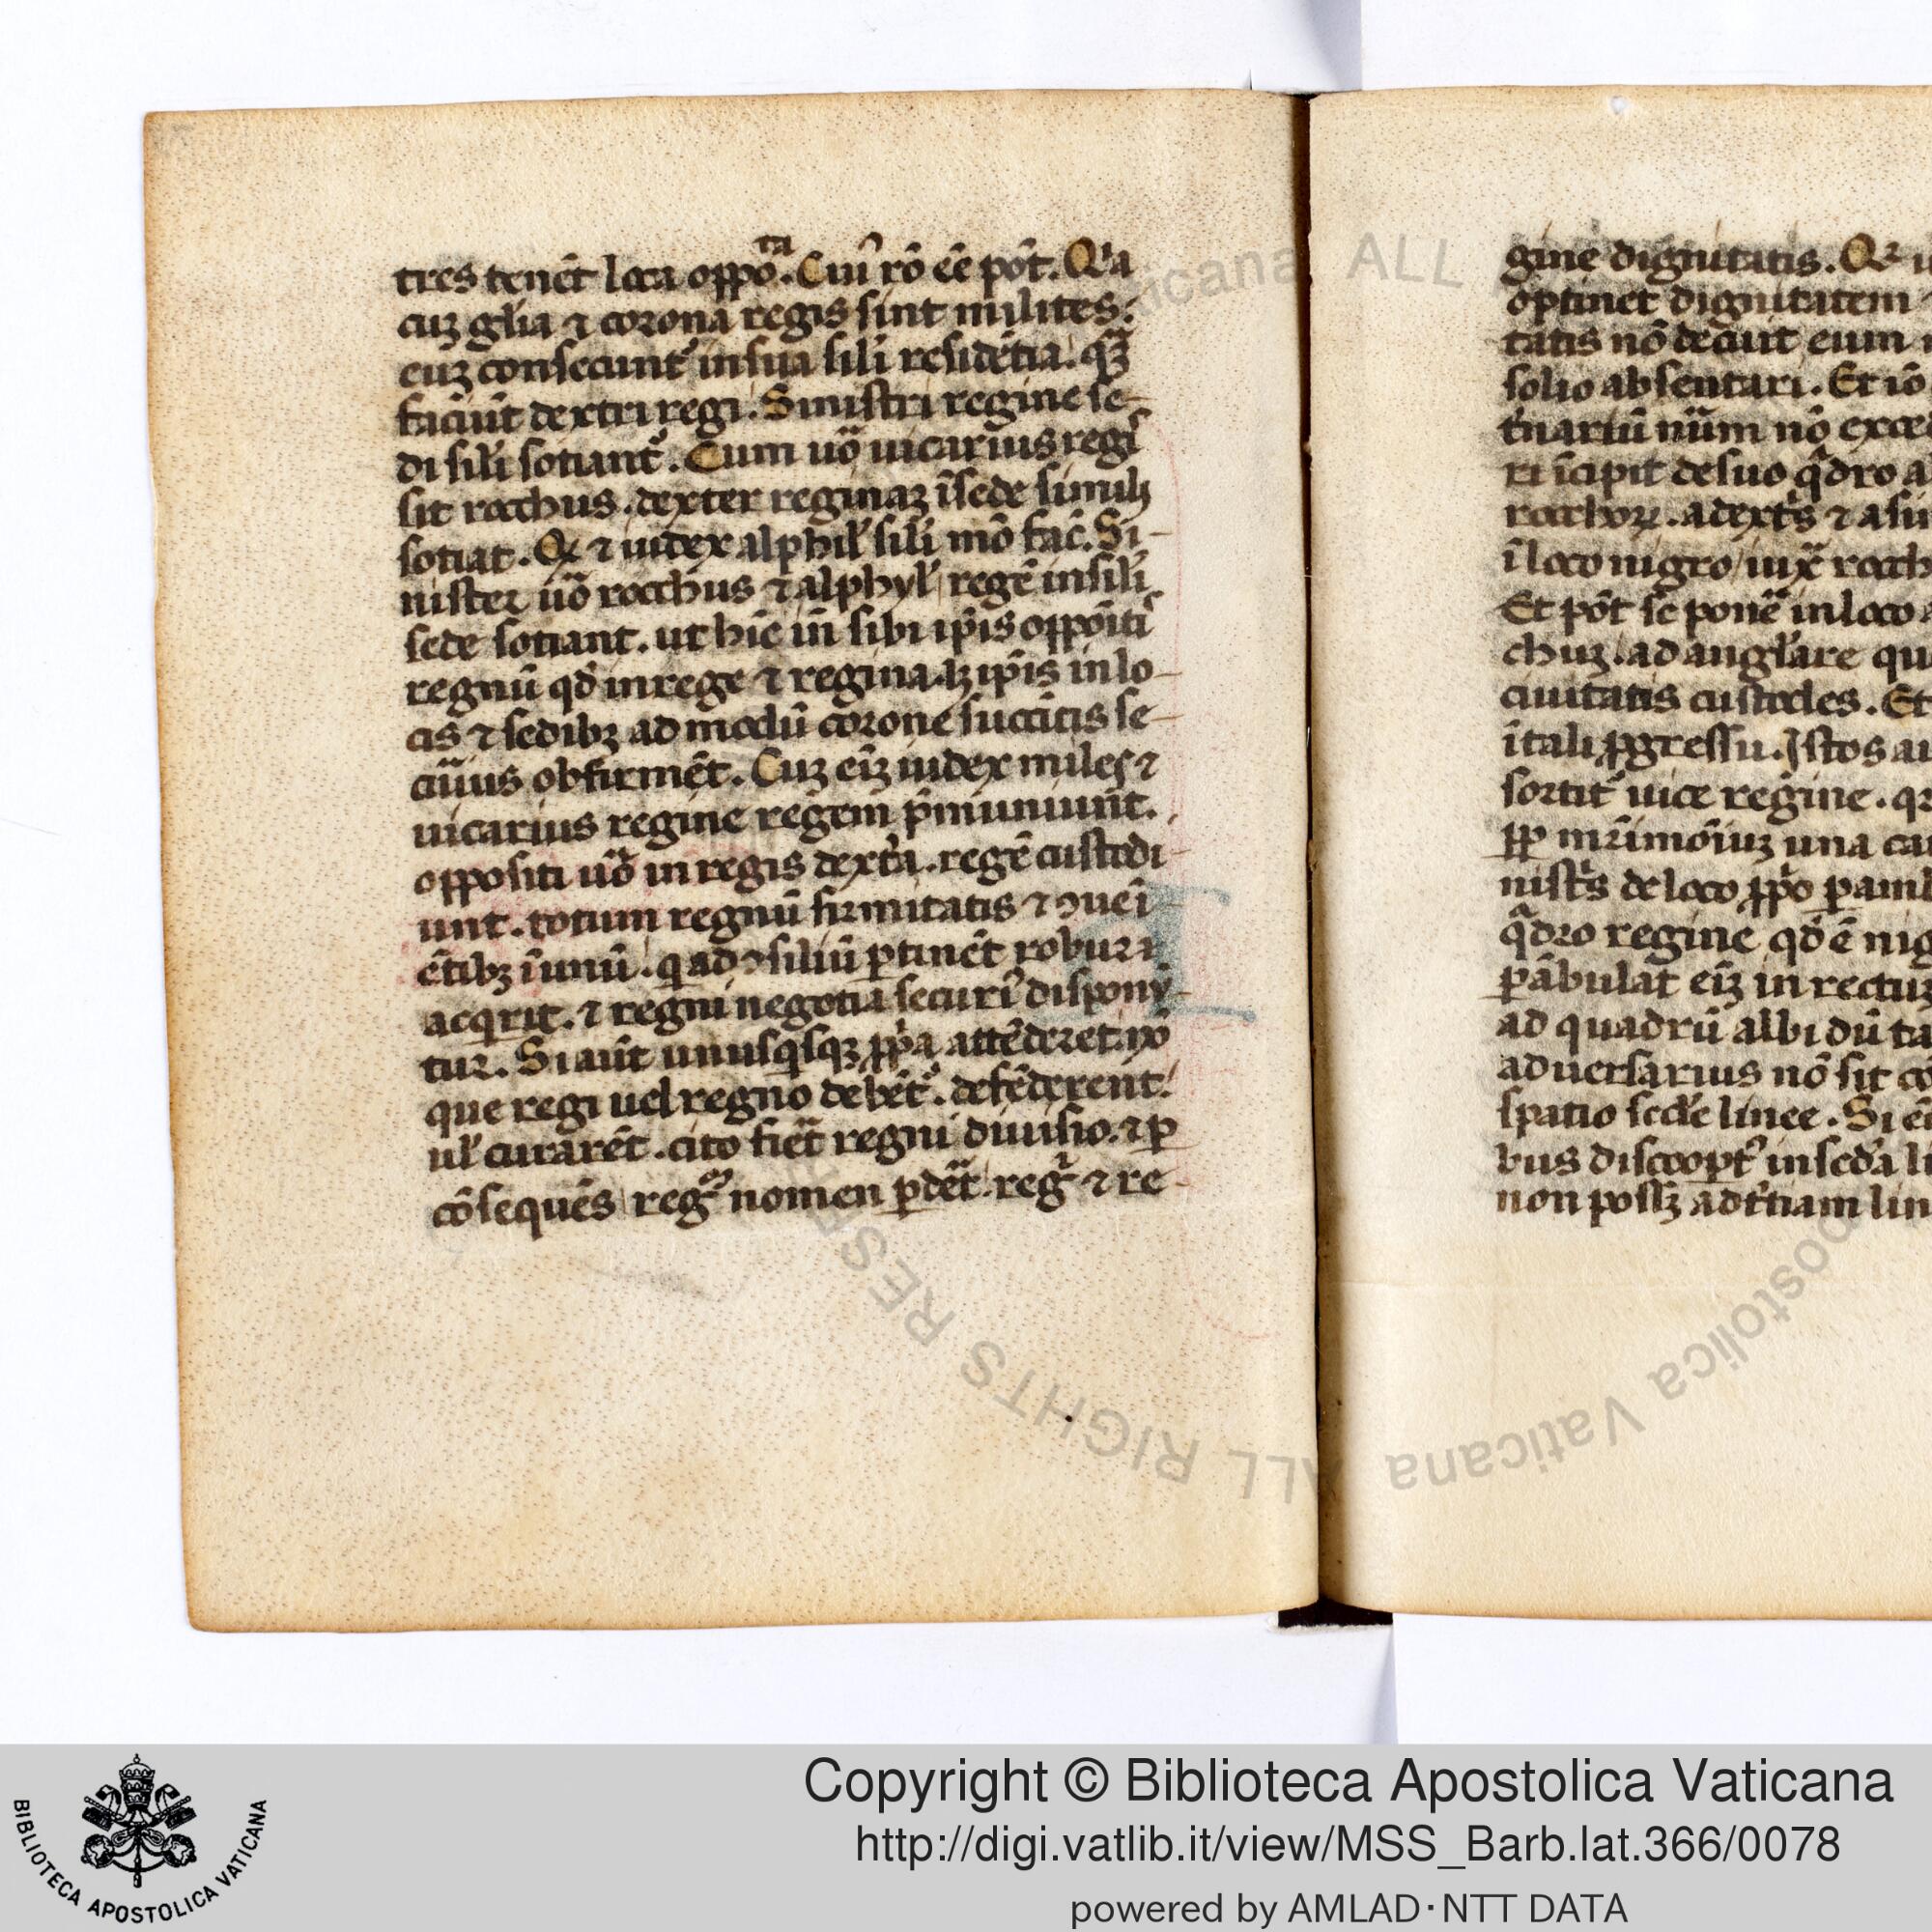 tres tenēt loca oppōta. Cuiꝰ rō ēe pōt. Qꝛa
cuꝫ gl̄ia ⁊ corona regis sint milites.
euꝫ consecunt᷑ in sua sil̄i residētia. qꝫ
faciūt dextri regi. Sinistri regine se-
di sil̄i sotiant᷑. Cum uō uicarius regis
sit rocchus. dexter reginaꝫ ī sede simul
sotiat. Qꝛ ⁊ iudex alphil' sil̄i mō fac̄. Si-
nister uō rocchus ⁊ alphyl' regē in sil̄i
sede sotiant. ut hic īn sibi ip̄is oppōiti
regnū qd̄ in rege ⁊ regina. lꝫ ip̄is in lo-
cis ⁊ sedibꝫ ad modū corone succītis se-
cūius obfirmēt. Cuꝫ eīꝫ iudex miles ⁊
uicarius regine regem p̄muniunt.
oppositi uō in regis dext̄a. regē custodi-
unt. totum regnū firmitatis ⁊ ꝯueī-
ētibꝫ ī unū. q̄ ad ꝯsiliū ꝑtinēt robur
acq̇rit. ⁊ regni negotia securiꝰ disponū-
tur. Si aūt unusq̇sqꝫ ꝓp̄a attēderet. nō
que regi uel regno debēt᷑. defēderent.
ul' curarēt. cito fiēt regni diuisio. ⁊ ꝑ
cōsequēs regꝫ nomen ꝑdēt. reg̃ ⁊ re-
gine dignitatis. Qꝛ
optinet dignitatem
tatis nō decuit eum
solio absentari. Et iō
t̄nariū nūm nō exced
ri īcipit de suo q̄dro a
rocchoꝝ. a dext̄s ⁊ a si
ī loco nigro iux̄ rocch
Et pōt se ponē in loco
chuꝫ. ad angl'are qu
ciuitatis custodes. Et
ī tali ꝓgressu. Istos
sortit᷑ uice regine. qꝛ
ꝓp̄ mr̄imōiuꝫ una ca
nist̄s de loco ꝓp̄o
q̄dro regine qd̄ ē nig
ꝑābulat eīꝫ in rectuꝫ
ad quadrū albi dū ta
aduersarius nō sit co
spatio sc̄de linee. Si
bus discoopt᷑ in sc̄da li
non possꝫ ad t̄tiam lin
vaticana ALL
ALL RIGHTS RES
postolica Vaticana
BIBLIOTECA APOSTOLICA VATICANA
Copyright © Biblioteca Apostolica Vaticana
http://digi.vatlib.it/view/MSS_Barb.lat.366/0078
powered by AMLAD·NTT DATA